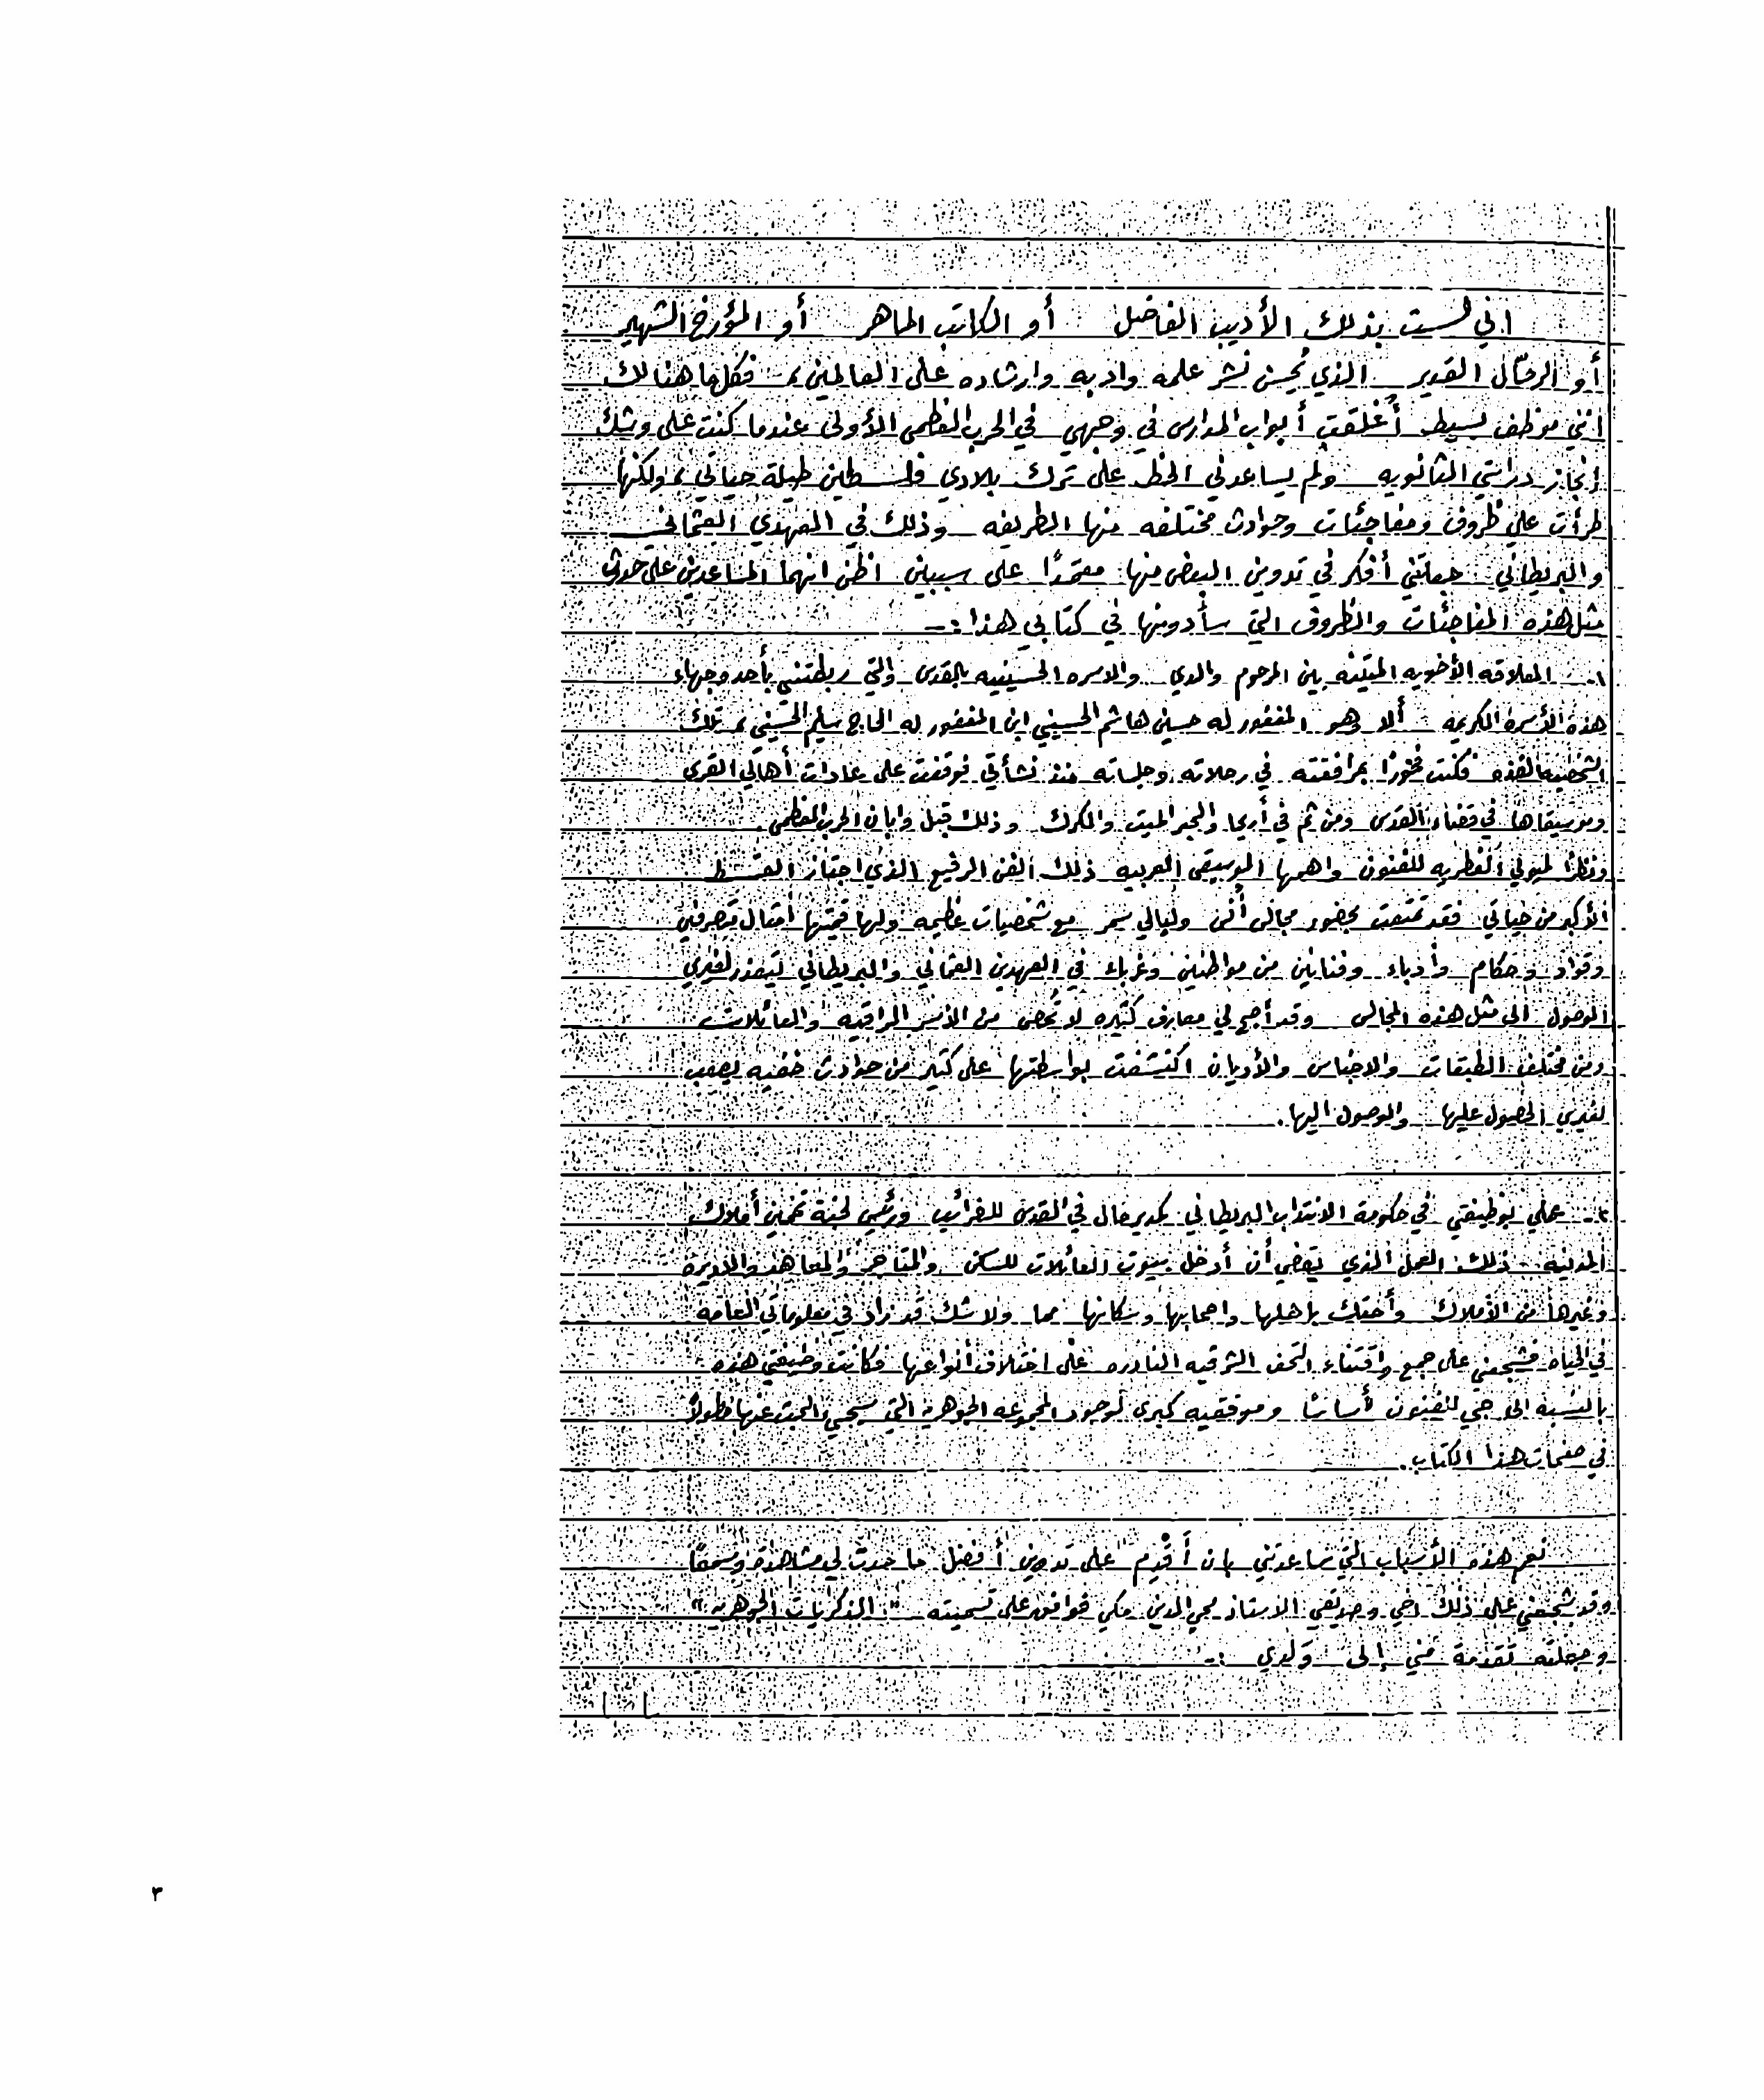 اني لست بذلك الأديب الفاضل أو الكاتب الماهر أو المؤرخ الشهير
أو الرحّال القدير الذي يُحسن نشر علمه وادبه وارشاده على العالمين، فكل ما هنالك
إنني موظف بسيط أُغلقت أبواب المدارس في وجهي في الحرب العظمى الأولى عندما كنت على وشك
إنجاز دراستي الثانويه ولم يساعدني الحظ على ترك بلادي فلسطين طيلة حياتي، ولكنها
طرأت علي ظروف ومفاجئات وحوادث مختلفه منها الطريفه وذلك في العهدي العثماني
والبريطاني جعلتني أفكر في تدوين البعض منها معتمدًا على سببين اظن انهما المساعدين على حدوث
مثل هذه المفاجئات والظروف التي سأدونها في كتابي هذا :ـ
١ـ العلاقه الأخويه المتينه بين المرحوم والدي والاسره الحسينيه بالقدس والتي ربطتني بأحد وجهاء
هذه الأسرة الكريمه ألا وهو المغفور له حسين هاشم الحسيني ابن المغفور له الحاج سليم الحسيني، تلك
الشخصيه الفذه فكنت فخورًا بمرافقته في رحلاته وجلساته منذ نشأتي فوقفت على عادات أهالي القرى
وموسيقاها في قضاء القدس ومن ثم في أريحا والبحر الميت والكرك وذلك قبل وابان الحرب العظمى.
ونظرًا لميولي الفطريه للفنون واهمها الموسيقى العربيه ذلك الفن الرفيع الذي اجتاز القسط
الأكبر من حياتي فقد تمتعت بحضور مجالس أُنس وليالي سمر مع شخصيات عظيمه ولها قيمتها امثال متصرفين
وقواد وحكام وأدباء وفنانين من مواطنين وغرباء في العهدين العثماني والبريطاني يتعذر لغيري
الوصول الى مثل هذه المجالس وقد أصبح لي معارف كثيره لا تُحصى من الأسر الراقيه والعائلات
ومن مختلف الطبقات والاجناس والأديان اكتشفت بواسطتها على كثير من حوادث خفيه يصعب
لغيري الحصول عليها والوصول اليها.
٢ـ عملي بوظيفتي في حكومة الانتداب البريطاني كمدير مال في القدس للضرائب ورئيس لجنة تخمين أملاك
المدينة ذلك العمل الذي يقضي أن أدخل بيوت العائلات للسكن والمتاجر والمعاهد والاديره
وغيرها من الأملاك وأحتك باهلها واصحابها وسكانها مما ولا شك قد زاد في معلوماتي العامه
في الحياه فشجعني على جمع واقتناء التحف الشرقيه النادره على اختلاف أنواعها فكانت وظيفتي هذه
بالنسبة الى حبي للفنون أساسًا وموفقيه كبرى لوجود المجموعه الجوهرية التي سيجيئ البحث عنها مطولاً
في صفحات هذا الكتاب.
نعم هذه الأسباب التي ساعدتني بان أقدم على تدوين أفضل ما حدث لي مشاهدة وسمعًا
وقد شجعني على ذلك اخي وصديقي الاستاذ محي الدين مكي فوافق على تسميته "الذكريات الجوهريه"
وجعلته تقدمة مني إلى ولدي :ـ
٣